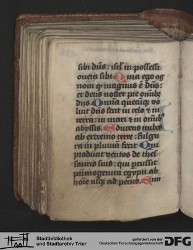 sibi dn̄s: isr̄l in possessi
onem sibi Quia ego ag
noui ꝙ magnus ē dn̄s:
et deus noster pre omīb᷒
dijs Omnia quecūq; vo
luit dn̄s fecit in celo et in
terra: in mari et in omīb᷒
abyssis Educens nubes
ab extremo terre: fulgu
ra in pluuiā fecit Qui
produxit ventos de thes
sauris suis: qui percussit
primogenita egypti ab
hoīe usq; ad pecus
Stadtbibliothek
und Stadtarchiv Trier
gefördert von der
Deutschen Forschungsgemeinschaft
DFG